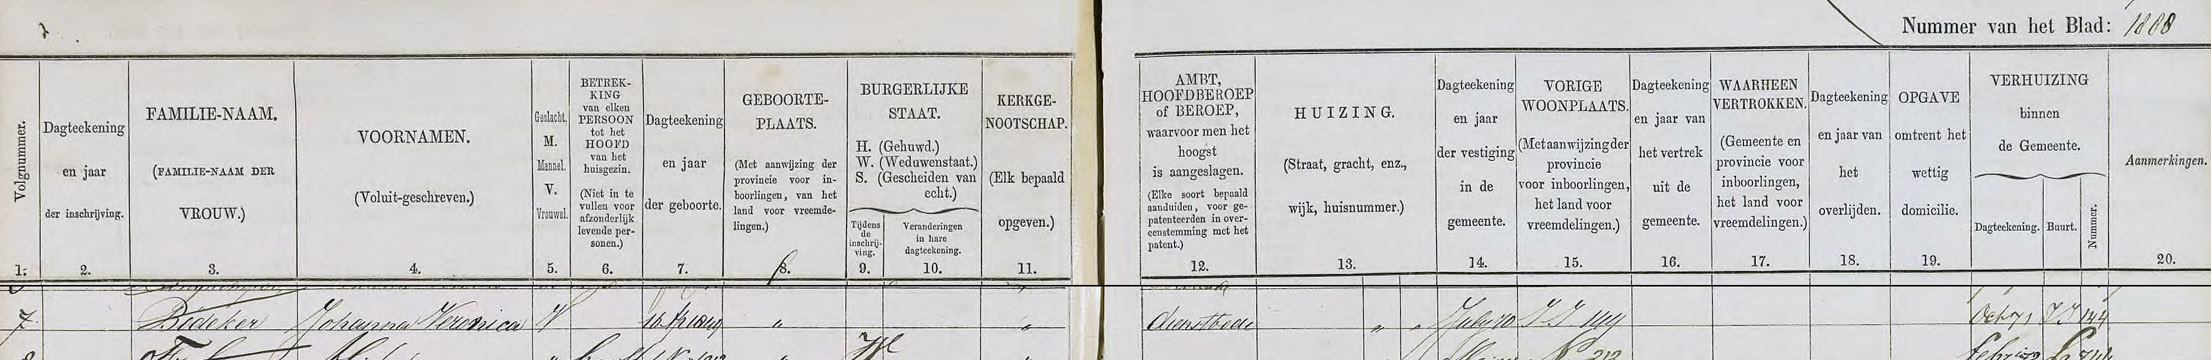 Nummer van het Blad: 1888
Volgnummer.
1.
Dagteekening
en jaar
der inschrijving.
2.
FAMILIE-NAAM.
(FAMILIE-NAAM DER
VROUW.)
3.
VOORNAMEN.
(Voluit-geschreven.)
4.
Geslacht.
M.
Mannel.
V.
Vrouwel.
5.
BETREK-
KING
van elken
PERSOON
tot het
HOOFD
van het
huisgezin.
(Niet in te
vullen voor
afzonderlijk
levende per-
sonen.)
6.
Dagteekening
en jaar
der geboorte.
7.
GEBOORTE-
PLAATS.
(Met aanwijzing der
provincie voor in-
boorlingen, van het
land voor vreemde-
lingen.)
8.
BURGERLIJKE
STAAT.
H. (Gehuwd.)
W. (Weduwenstaat.)
S. (Gescheiden van
echt.)
Tijdens
de
inschrij-
ving.
9.
Veranderingen
in hare
dagteekening.
10.
KERKGE-
NOOTSCHAP.
(Elk bepaald
opgeven.)
11.
AMBT,
HOOFDBEROEP
of BEROEP,
waarvoor men het
hoogst
is aangeslagen.
(Elke soort bepaald
aanduiden, voor ge-
patenteerden in over-
eenstemming met het
patent.)
12.
HUIZING.
(Straat, gracht, enz.,
wijk, huisnummer.)
13.
Dagteekening
en jaar
der vestiging
in de
gemeente.
14.
VORIGE
WOONPLAATS.
(Met aanwijzing der
provincie
voor inboorlingen,
het land voor
vreemdelingen.)
15.
Dagteekening
en jaar van
het vertrek
uit de
gemeente.
16.
WAARHEEN
VERTROKKEN.
(Gemeente en
provincie voor
inboorlingen,
het land voor
vreemdelingen.)
17.
Dagteekening
en jaar van
het
overlijden.
18.
OPGAVE
omtrent het
wettig
domicilie.
19.
VERHUIZING
binnen
de Gemeente.
Dagteekening.
Buurt.
Nummer.
Aanmerkingen.
20.
7 Bedeker Johanna Veronica V 1849 " " dienstbode " " July 70 JJ 144 Oct 71 JJ 144